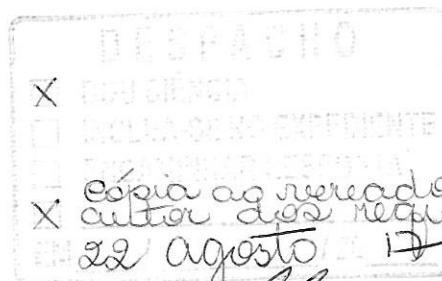 DESPACHO
X DOU CIÊNCIA
INCLUA-SE NO EXPEDIENTE
cópia ao vereado
X autor dos requ
EM 22 agosto 17